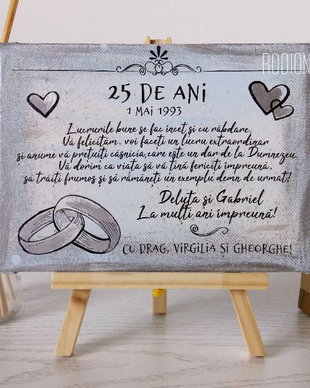 RODION
25 DE ANI
1 MAI 1993
Lucrurile bune se fac încet și cu răbdare.
Vă felicităm, voi faceți un lucru extraordinar
și anume vă prețuiți căsnicia, care este un dar de la Dumnezeu.
Vă dorim ca viața să vă țină fericiți împreună,
să trăiți frumos și să rămâneți un exemplu demn de urmat!
Deluța și Gabriel
La mulți ani împreună!
CU DRAG, VIRGILIA ȘI GHEORGHE!